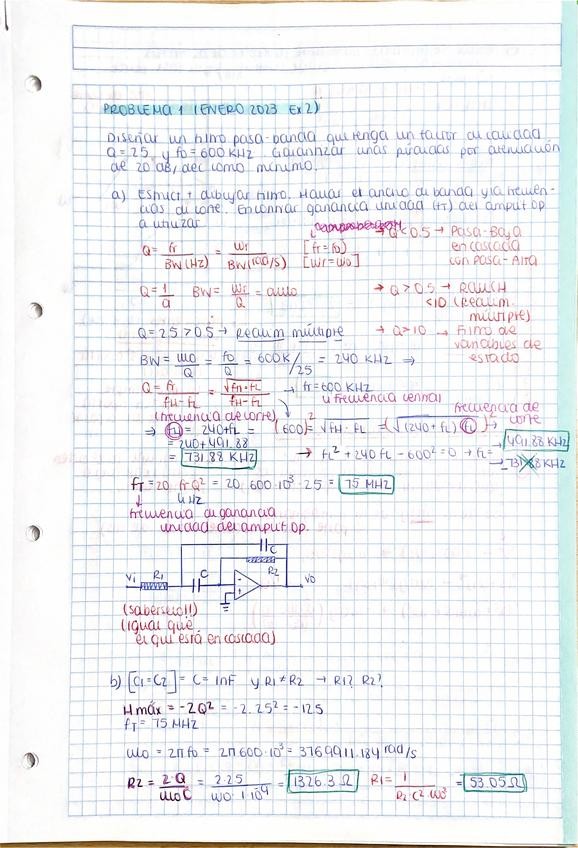 PROBLEMA 1 (ENERO 2023 EX2)
Diseñar un filtro pasa-banda que tenga un factor de calidad
Q = 2.5 y f0 = 600 KHZ Garantizar unas pérdidas por atenuación
de 20 dB/dec como mínimo.
a) Estruct + dibujar filtro. Hallar el ancho de banda y la frecuen-
cias de corte. Encontrar ganancia unidad (fT) del amput op
a utilizar
Q = fr / BW(HZ) = wr / BW(rad/s) [fr = f0] [wr = w0]
→ Q < 0.5 → Pasa-Baja
en cascada
con Pasa-Alta
Q = 1/a BW = wr/Q = a·w0
→ Q > 0.5 → RAUCH
< 10 (Realim.
múltiple)
Q = 2.5 > 0.5 → Realim múltiple
→ Q > 10 → Filtro de
variables de
estado
BW = w0/Q = f0/Q = 600K/2.5 = 240 KHZ ⇒
Q = fr / fH-fL = √fH·fL / fH-fL → fr = 600 KHZ
u frecuencia central
(frecuencia de corte)
frecuencia de
corte
= 240+fL = (600)² = √fH·fL = (√(240+fL) fL)²
→ 491.88 KHZ
= 240+491.88
= 731.88 KHZ
→ fL² + 240 fL - 600² = 0 → fL =
→ -731.88 KHZ
fT = 20 fr Q² = 20 · 600·10³ · 2.5 = 75 MHZ
HZ
frecuencia de ganancia
unidad del amput op.
C
Vi R1 C R2 Vo
(sabérselo!!)
(igual que
el que está en cascada)
b) [C1 = C2] = C = 1nF y R1 ≠ R2 → R1? R2?
Hmáx = -2Q² = -2·2.5² = -12.5
fT = 75 MHZ
w0 = 2π f0 = 2π 600·10³ = 3769911.184 rad/s
R2 = 2·Q / w0 C = 2·2.5 / w0·1·10⁻⁹ = 1326.3 Ω R1 = 1 / R2·C²·w0² = 53.05 Ω